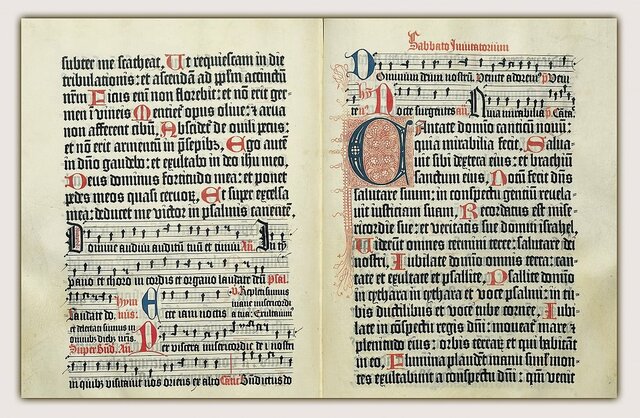 subter me scateat. Ut requiescam in die
tribulationis: et ascendā ad pplm accinctū
nrm̄ Ficus enī non florebit: et nō erit ger-
men ī vineis Mencietˀ opus olive: ⁊ arva
non afferent cibū. Abscidet de ovili pecus:
et nō erit armentū in p̄sepibꝰ. Ego autē
in dn̄o gaudebo: et exultabo in deo ihu meo.
Deus dominus fortitudo mea: et ponet
pedes meos quasi cervoꝝ. Et super excelsa
mea: deducet me victor in psalmis canentē.
Domine audivi auditū tuū et timui. An̄. In tȳ
pano et choro in cordis et organo laudate deū psal.
Laudate do. hymnus. Ecce iam noctis
v̄. Repleti sumus
mane misericordi
a tua. Exultavimꝰ
et delectati sumus in
omnibꝰ diebꝰ nr̄is.
Super Bn̄d. An̄. Per viscera misericordie dei nostri
in quibꝰ visitavit nos oriens ex alto Cantic̄ Bn̄dictus do
Sabbato Invitatorium
Dominum deum nostrū. Venite adoremꝰ. p̄s Veni
te. hȳ. Nocte surgentes an̄. Quia mirabilia p̄s. Cāta.
CAntate domino canticū novū:
quia mirabilia fecit. Salva-
vit sibi dextera eius: et brachiū
sanctum eius. Notum fecit dn̄s
salutare suum: in conspectu gentiū revela-
vit iusticiam suam. Recordatus est mise-
ricordie sue: et veritatis sue domui israhel.
Viderunt omnes termini terre: salutare dei
nostri. Iubilate domino omnis terra: can-
tate et exultate et psallite. Psallite domino
in cythara in cythara et voce psalmi: in tu-
bis ductilibus et voce tube cornee. Iubi-
late in conspectu regis dn̄i: moveatˀ mare ⁊
plenitudo eius: orbis terraꝝ et qui habitāt
in eo. Flumina plaudēt manu simul mon-
tes exultabunt a conspectu dn̄i: qm̄ venit